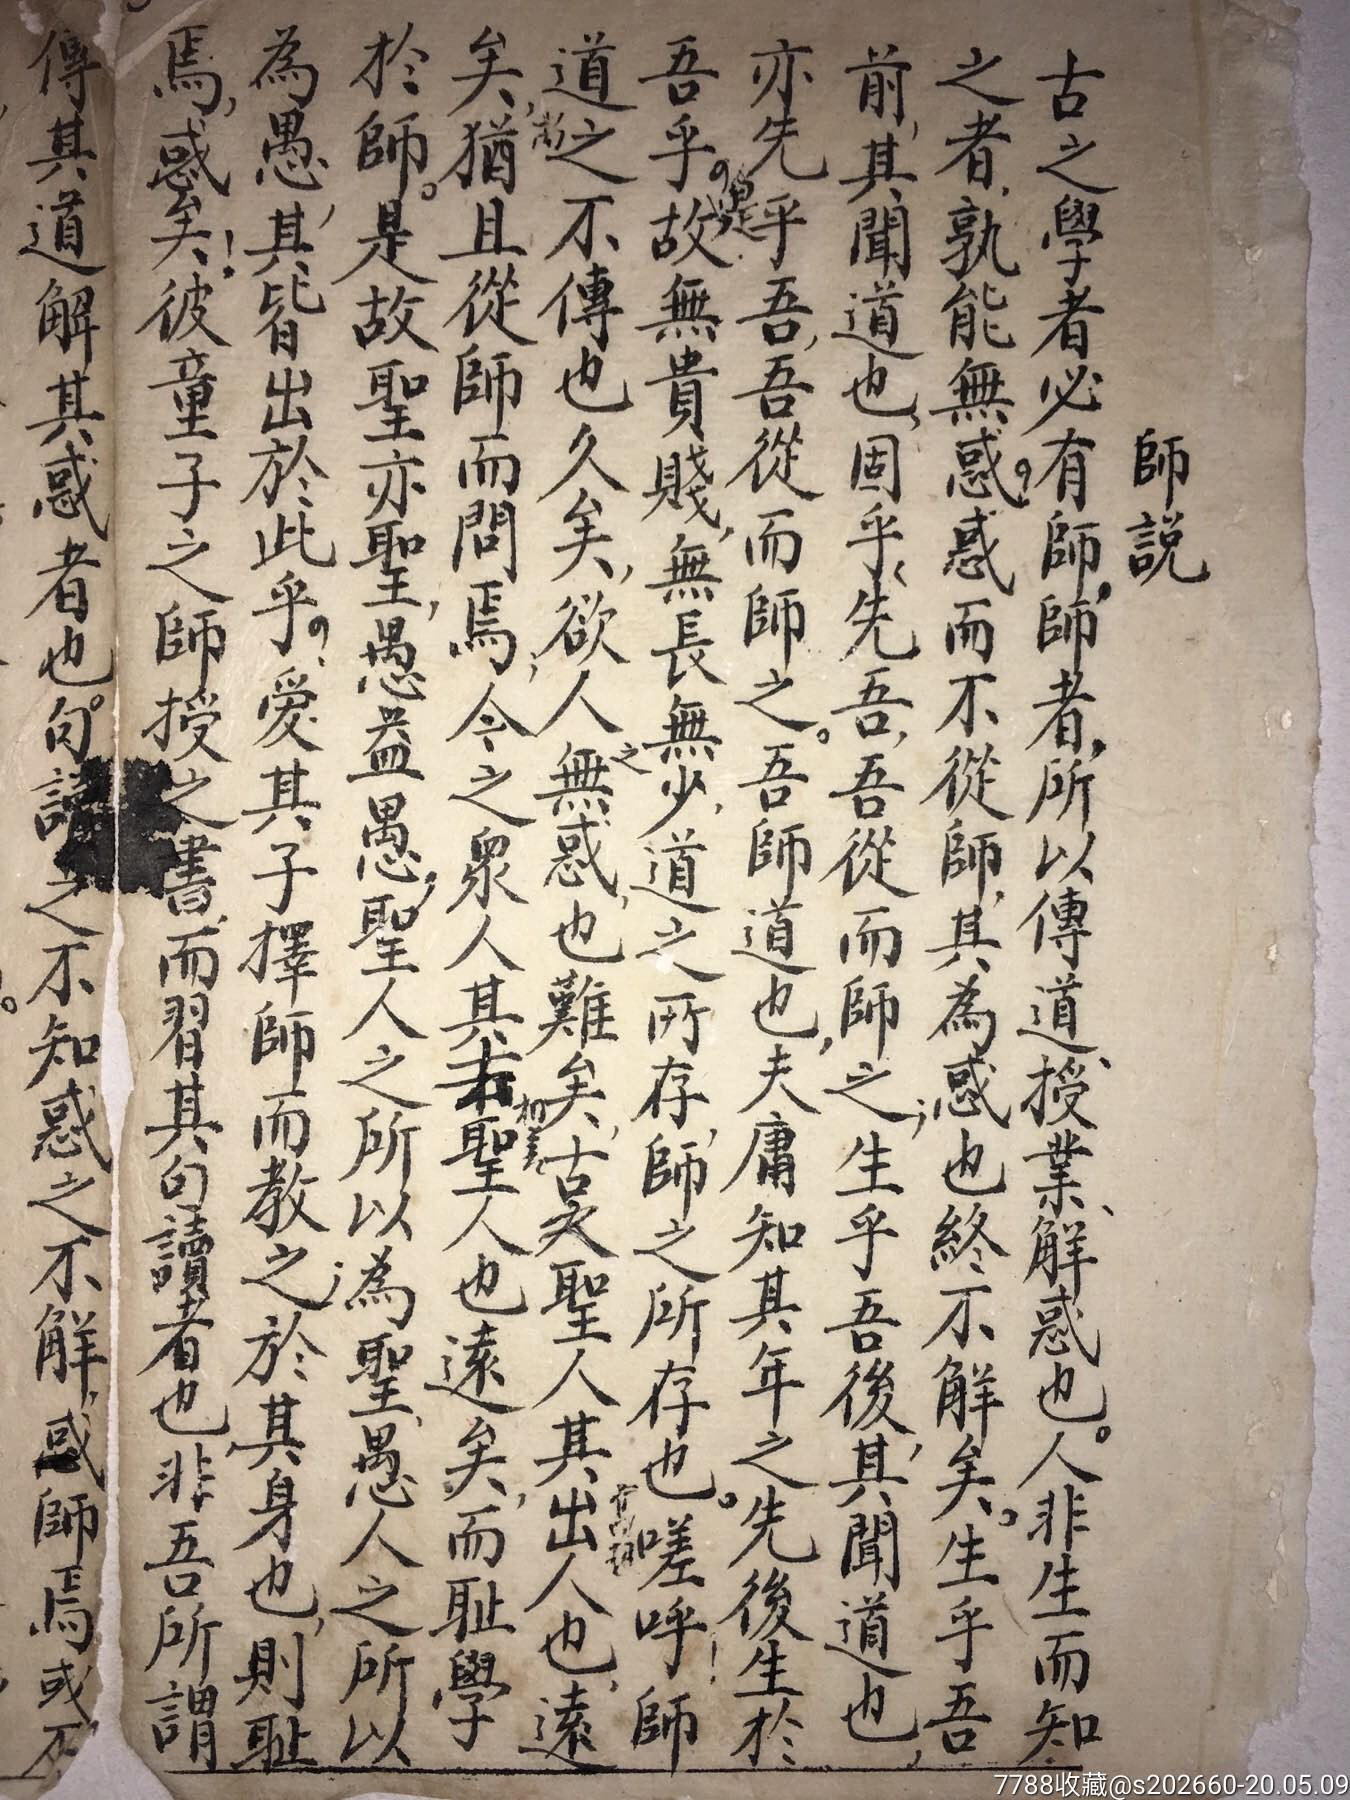 師説
古之學者必有師。師者，所以傳道、授業、解惑也。人非生而知
之者，孰能無惑？惑而不從師，其為惑也終不解矣。生乎吾
前，其聞道也，固乎先吾，吾從而師之；生乎吾後，其聞道也，
亦先乎吾，吾從而師之。吾師道也，夫庸知其年之先後生於
吾乎？是故無貴賤，無長無少，道之所存，師之所存也。嗟呼！師
道之不傳也久矣，欲人之無惑，也難矣，古之聖人其出人也，遠
矣，猶且從師而問焉，今之衆人其聖人也遠矣，而耻學
於師。是故聖亦聖，愚益愚，聖人之所以為聖，愚人之所以
為愚，其皆出於此乎？愛其子擇師而教之；於其身也，則耻
焉，惑矣！彼童子之師授之書，而習其句讀者也，非吾所謂
傳其道解其惑者也。句讀之不知惑之不解，或師焉，或不
7788收藏@s202660-20.05.09